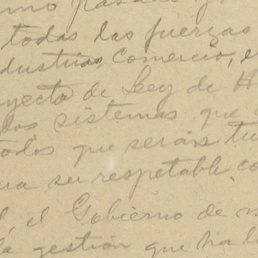 todas las fuerzas
industrias, comercio, e
yecto de Ley de H
los sistemas que
todos que serán tu
su respetable co
el Gobierno de m
la gestión que ha l